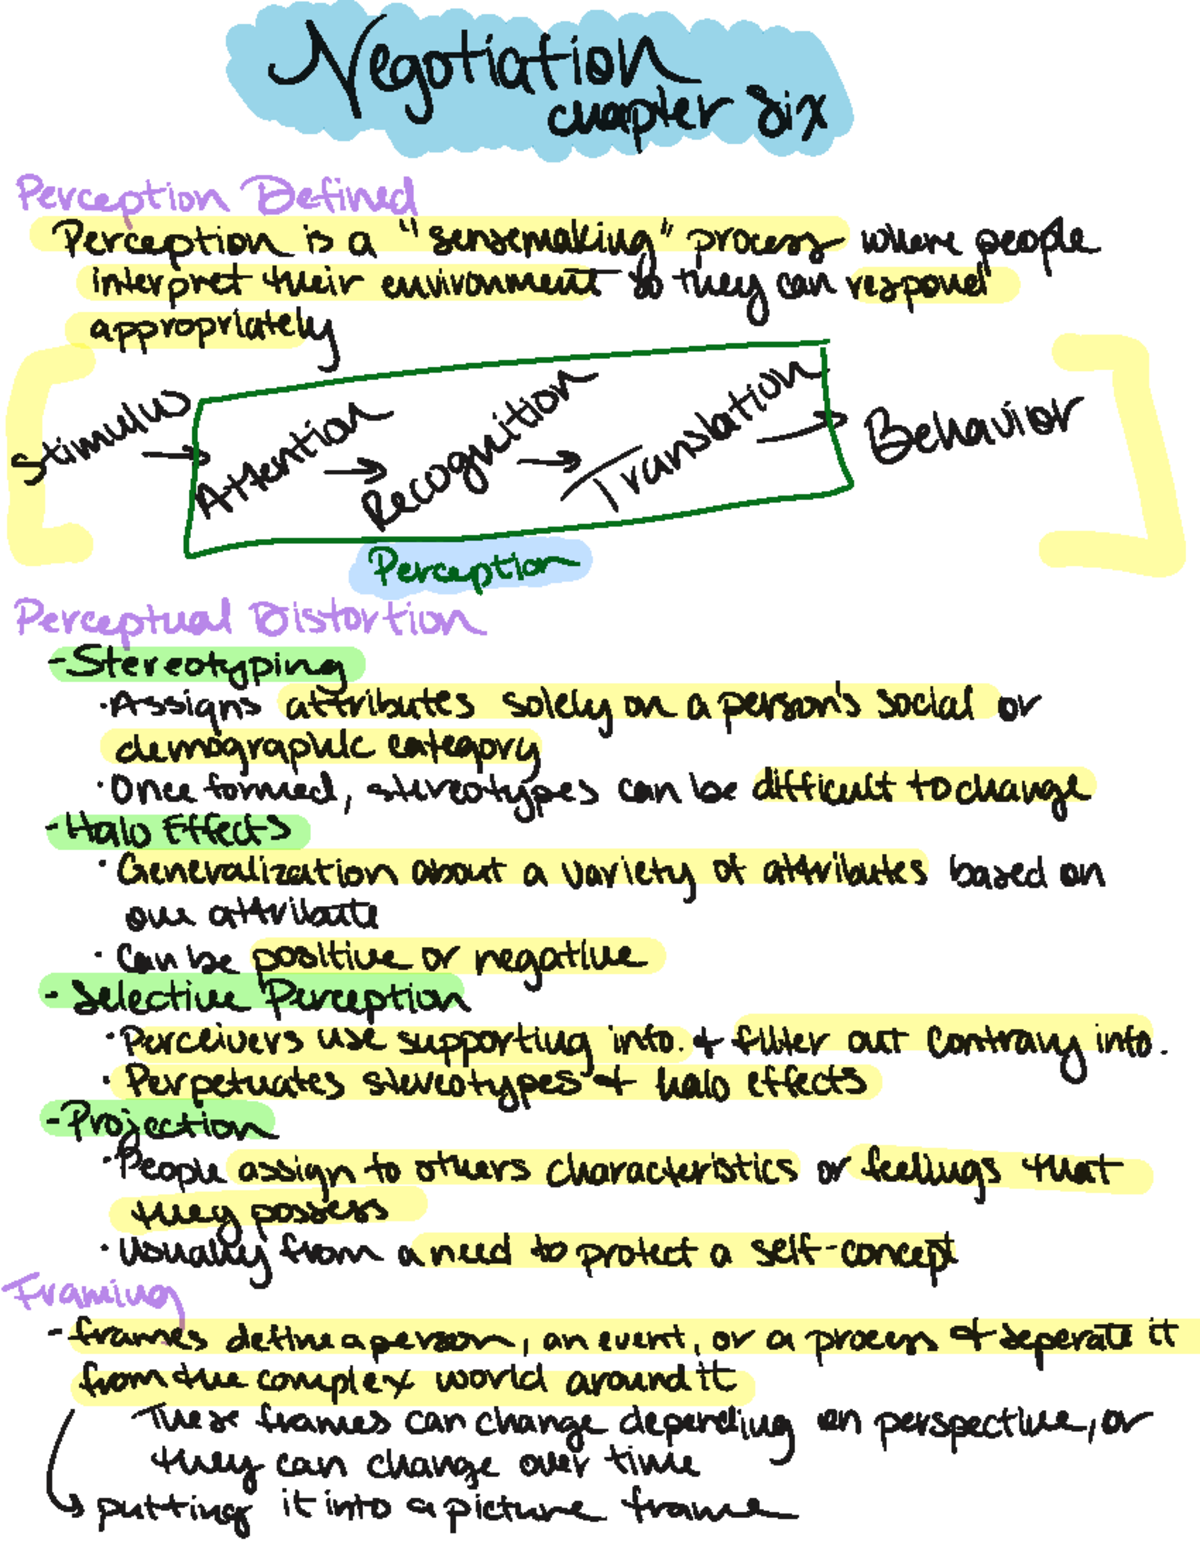 Negotiation
chapter six
Perception Defined
Perception is a "sensemaking" process where people
interpret their environment so they can respond
appropriately
Stimulus → Attention → Recognition → Translation → Behavior
Perception
Perceptual Distortion
- Stereotyping
· Assigns attributes solely on a person's social or
demographic category
· Once formed, stereotypes can be difficult to change
- Halo Effects
· Generalization about a variety of attributes based on
one attribute
· Can be positive or negative
- Selective Perception
· Perceivers use supporting info. + filter out contrary info.
· Perpetuates stereotypes + halo effects
- Projection
· People assign to others characteristics or feelings that
they possess
· Usually from a need to protect a self-concept
Framing
- frames define a person, an event, or a process + seperate it
from the complex world around it
These frames can change depending on perspective, or
they can change over time
↳ putting it into a picture frame